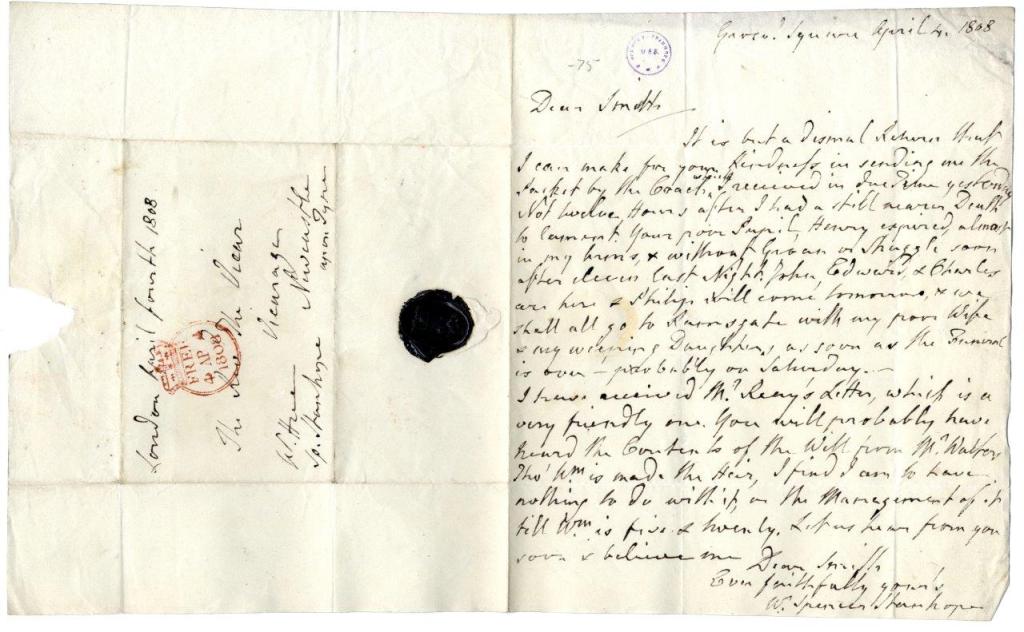 Grosv.r Square April 4. 1808
-75
Dear Smith
It is but a dismal Return that
I can make for your Kindness in sending me the
Packet by the Coach, which I received in due Time yesterday
Not twelve Hours after I had a still nearer Death
to lament. Your poor Pupil, Henry expired, almost
in my arms, & without Groan or Struggle soon
after eleven last Night. John, Edward, & Charles
are here & Philip will come tomorrow, & we
shall all go to Ramsgate with my poor Wife
& my weeping Daughters, as soon as the Funeral
is over - probably on Saturday. -
I have received Mr. Letter, which is a
very friendly one. You will probably have
heard the Contents of the Will from Mr.
Tho' Wm is made the Heir, I find I am to have
nothing to do with it, or the Management of it
till Wm is five & twenty. Let us hear from you
soon & believe me
Dear Smith
Ever faithfully yours
W. Spencer Stanhope
London April fourth 1808
FREE
4 AP 4
1808
The Rev. The Vicar
Vicarage
Newcastle
upon Tyne
W. Spencer Stanhope